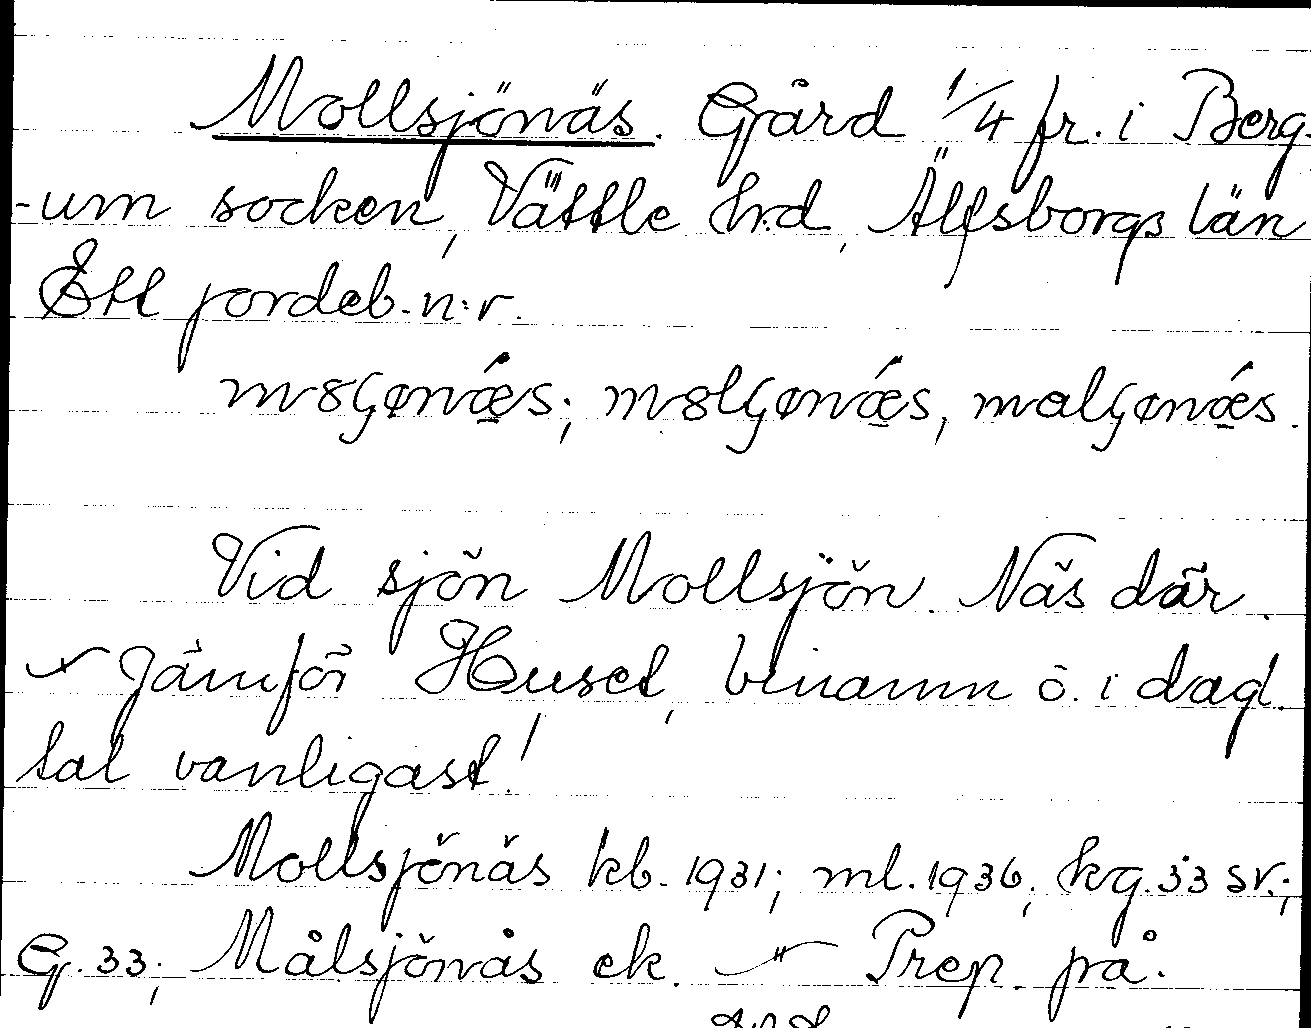 Mollsjönäs. Gård 1/4 fr. i Berg-
-um socken, Vättle hrd, Älfsborgs län
Ett jordeb. n:r.
Vid sjön Mollsjön. Näs där.
Jämför Huset, binamn o. i dagl.
tal vanligast!
Mollsjönäs kb. 1931; ml. 1936; kg. 33 sv.;
G. 33; Målsjönäs ek. — " — Prep. på.